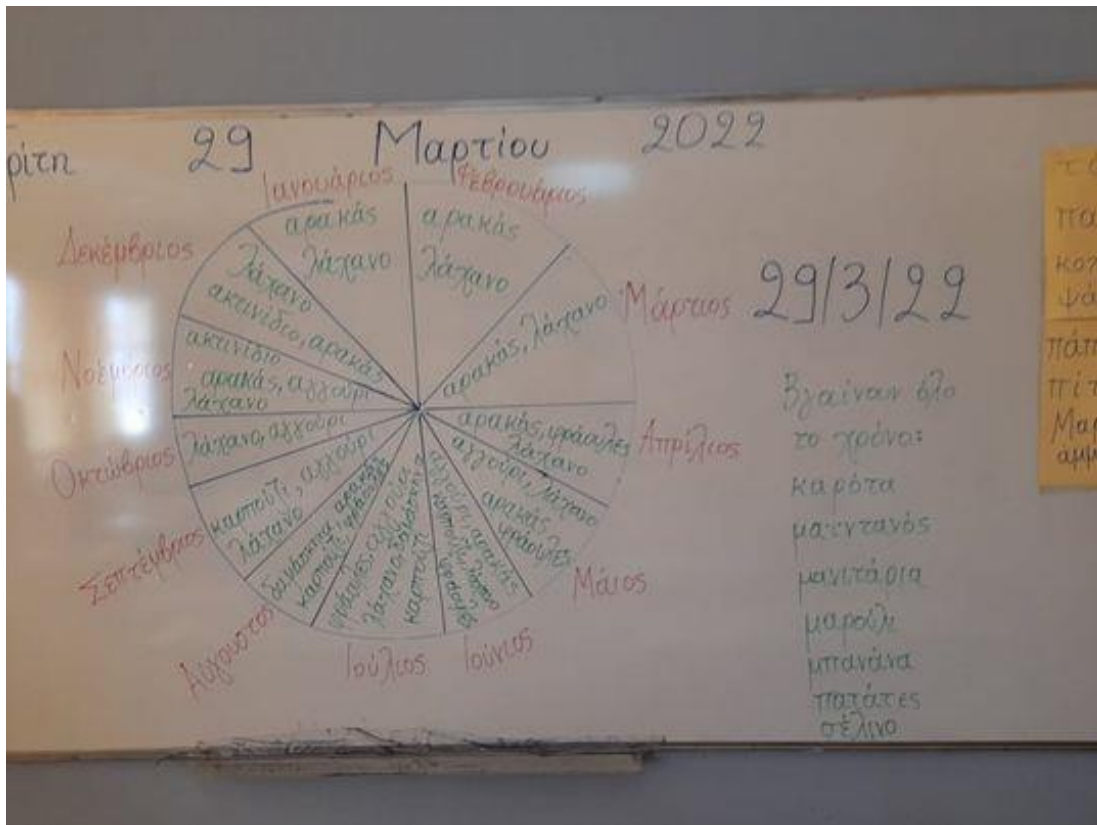 29 Μαρτίου 2022
Ιανουάριος
αρακάς
λάχανο
Φεβρουάριος
αρακάς
λάχανο
Μάρτιος
αρακάς, λάχανο
Απρίλιος
αρακάς, φράουλες
λάχανο
Μάιος
αγγούρι, λάχανο
αρακάς
φράουλες
Ιούνιος
αγγούρι, αρακάς
καρπούζι, λάχανο
Ιούλιος
φράουλες, αγγούρι
καρπούζι
Αύγουστος
καρπούζι
Σεπτέμβριος
καρπούζι, αγγούρι
λάχανο
Οκτώβριος
λάχανο, αγγούρι
Νοέμβριος
ακτινίδιο
αρακάς, αγγούρι
λάχανο
Δεκέμβριος
λάχανο
ακτινίδιο, αρακάς
29/3/22
Βγαίνουν όλο
το χρόνο:
καρότα
μαϊντανός
μανιτάρια
μαρούλι
μπανάνα
πατάτες
σέλινο